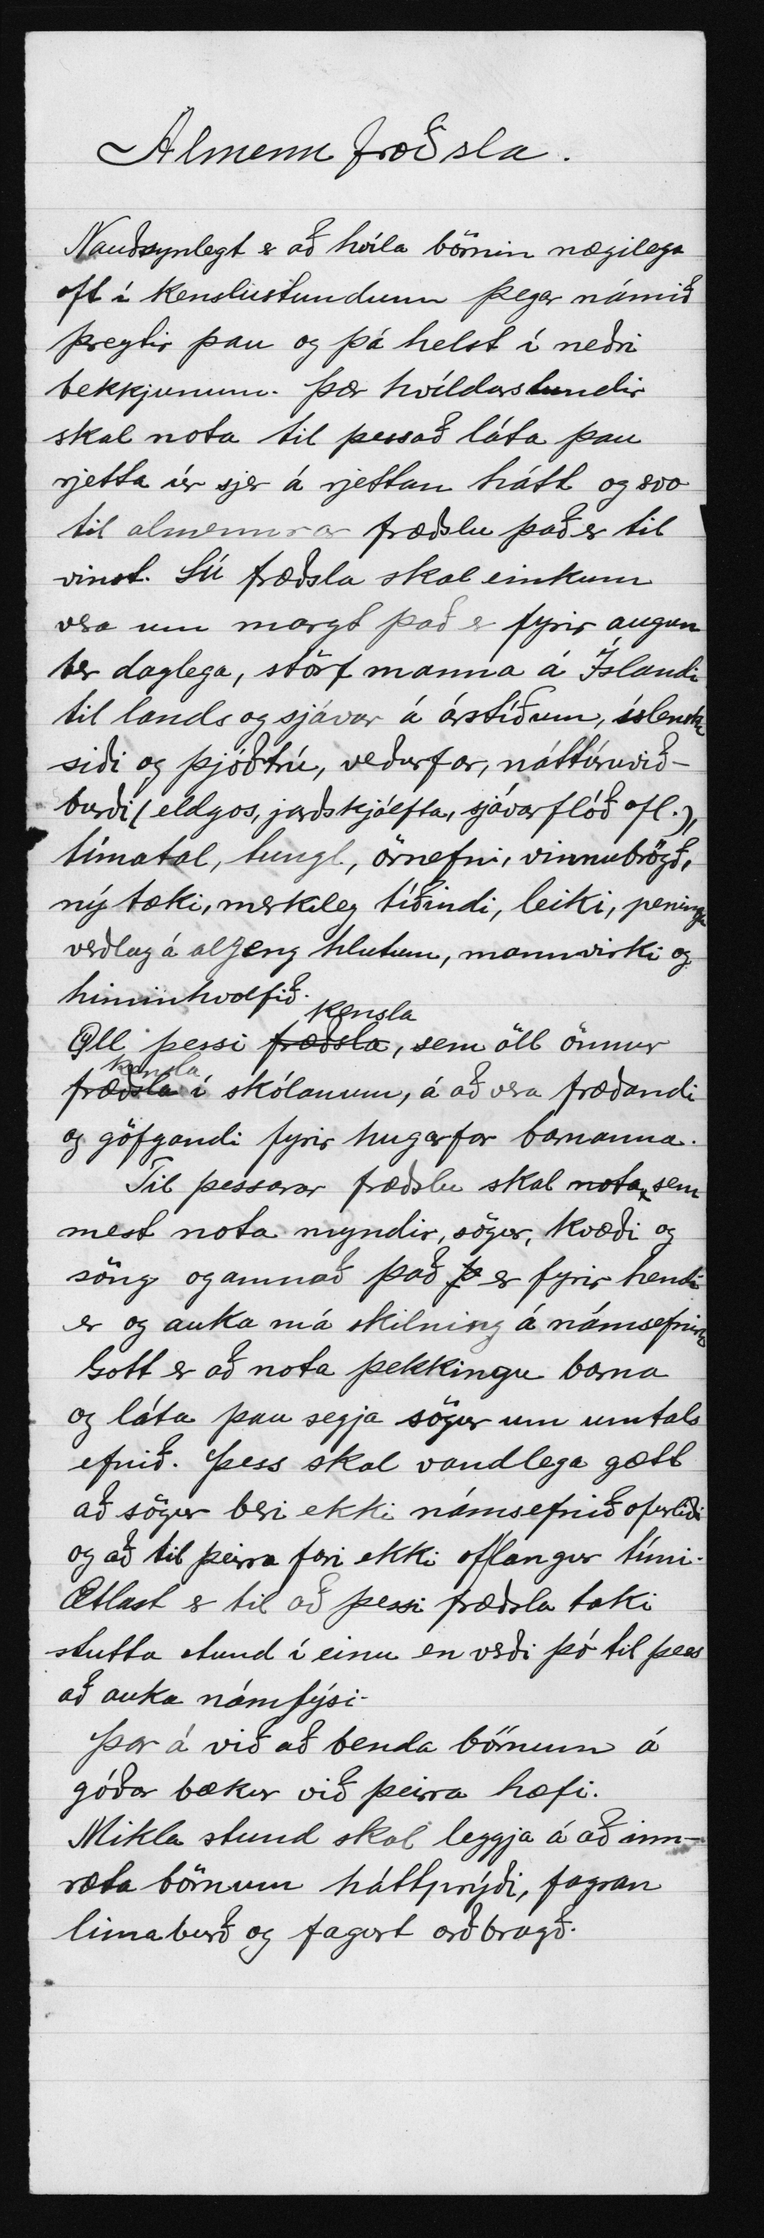 Almenn fræðsla.
Nauðsynlegt er að hvíla börnin nægilega
oft í kenslustundum þegar námið
þreytir þau og þá helst í neðri
bekkjunum. Þær hvíldarstundir
skal nota til þessað láta þau
rjetta úr sjer á rjettan hátt og svo
til almennrar fræðslu það er til
vinst. Sú fræðsla skal einkum
vera um margt það er fyrir augun
ber daglega, störf manna á Íslandi
til lands og sjávar á árstíðum, íslenska
siði og þjóðtrú, veðurfar, náttúruvið-
burði (eldgos, jarðskjálfta, sjávarflóð ofl.),
tímatal, tungl, örnefni, vinnubrögð,
ný tæki, merkileg tíðindi, leiki, peninga
verðlag á algeng hlutum, mannvirki og
himinhvolfið.
kensla
Öll þessi fræðsla, sem öll önnur
kensla
fræðsla í skólanum, á að vera fræðandi
og göfgandi fyrir hugarfar barnanna.
Til þessarar fræðslu skal nota, sem
mest nota myndir, sögur, kvæði og
söng og annað það þ er fyrir hendi
er og auka má skilning á námsefninu
Gott er að nota þekkingu barna
og láta þau segja sögur um umtals
efnið. Þess skal vandlega gætt
að sögur beri ekki námsefnið ofurliði
og að til þeirra fari ekki oflangur tími.
Ætlast er til að þessi fræðsla taki
stutta stund í einu en verði þó til þess
að auka námfýsi.
Þar á við að benda börnum á
góðar bækur við þeirra hæfi.
Mikla stund skal leggja á að inn-
ræta börnum háttprýði, fagran
limaburð og fagurt orðbragð.